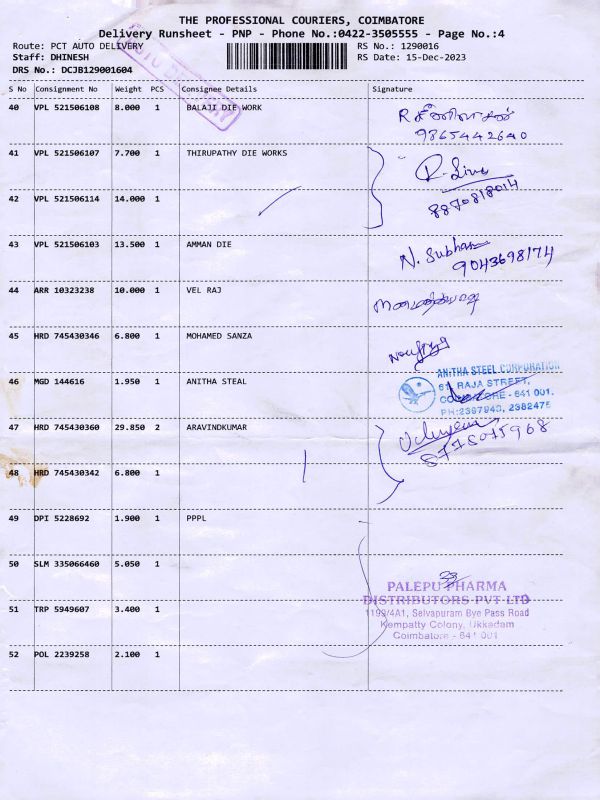 THE PROFESSIONAL COURIERS, COIMBATORE
Delivery Runsheet - PNP - Phone No.:0422-3505555 - Page No.:4
Route: PCT AUTO DELIVERY
RS No.: 1290016
Staff: DHINESH
RS Date: 15-Dec-2023
DRS No.: DCJB129001604
AUTO DELIVERY
S No Consignment No Weight PCS Consignee Details Signature
40 VPL 521506108 8.000 1 BALAJI DIE WORK
9865442640
41 VPL 521506107 7.700 1 THIRUPATHY DIE WORKS
R. Siva
8870818014
42 VPL 521506114 14.000 1
43 VPL 521506103 13.500 1 AMMAN DIE
N. Subhan
9043698174
44 ARR 10323238 10.000 1 VEL RAJ
45 HRD 745430346 6.800 1 MOHAMED SANZA
46 MGD 144616 1.950 1 ANITHA STEAL
ANITHA STEEL CORPORATION
61, RAJA STREET,
COIMBATORE - 641 001.
PH:2397940, 2382475
47 HRD 745430360 29.850 2 ARAVINDKUMAR
48 HRD 745430342 6.800 1
49 DPI 5228692 1.900 1 PPPL
50 SLM 335066460 5.050 1
PALEPU PHARMA
DISTRIBUTORS PVT LTD
1199/4A1, Selvapuram Bye Pass Road
Kempatty Colony, Ukkadam
Coimbatore - 641 001
51 TRP 5949607 3.400 1
52 POL 2239258 2.100 1